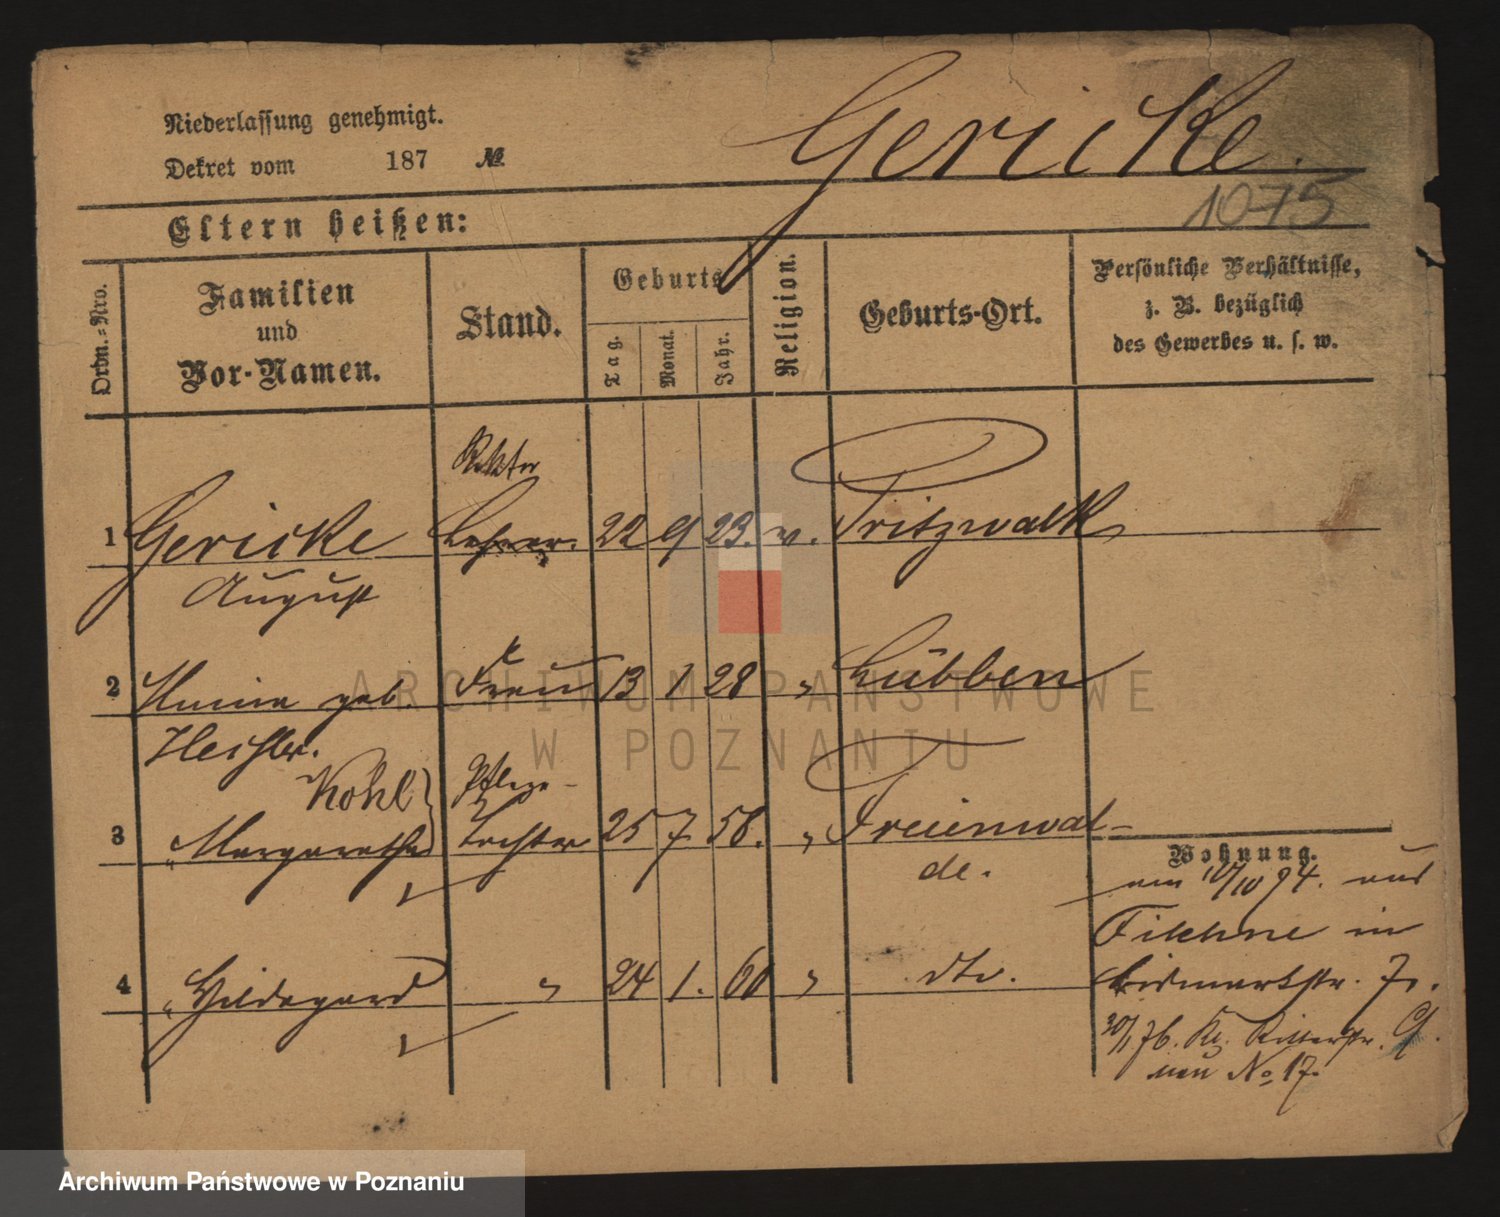 Niederlassung genehmigt.
Dekret vom 187 №
Gericke.
1075
Eltern heißen:
Ordn.-Nro.
Familien und Vor-Namen.
Stand.
Geburts
Tag.
Monat.
Jahr.
Religion.
Geburts-Ort.
Persönliche Verhältnisse, z. B. bezüglich des Gewerbes u. s. w.
Rektor
1 Gericke Lehrer. 22 9 23. Pritzwalk
August
2 geb. Frau 13 1 28 " Lübben
Kohl Pflege-
3 " Margarethe Tochter 25 7 58. " Freienwal-
de.
Wohnung.
am 10/10 74. aus
Filehne in
Bismarkstr. 7.
4 " Hildegard " 24 1. 60 " dto.
30/1 76. Kl. Ritterstr. 9.
neu No 17.
ARCHIWUM PAŃSTWOWE
W POZNANIU
Archiwum Państwowe w Poznaniu